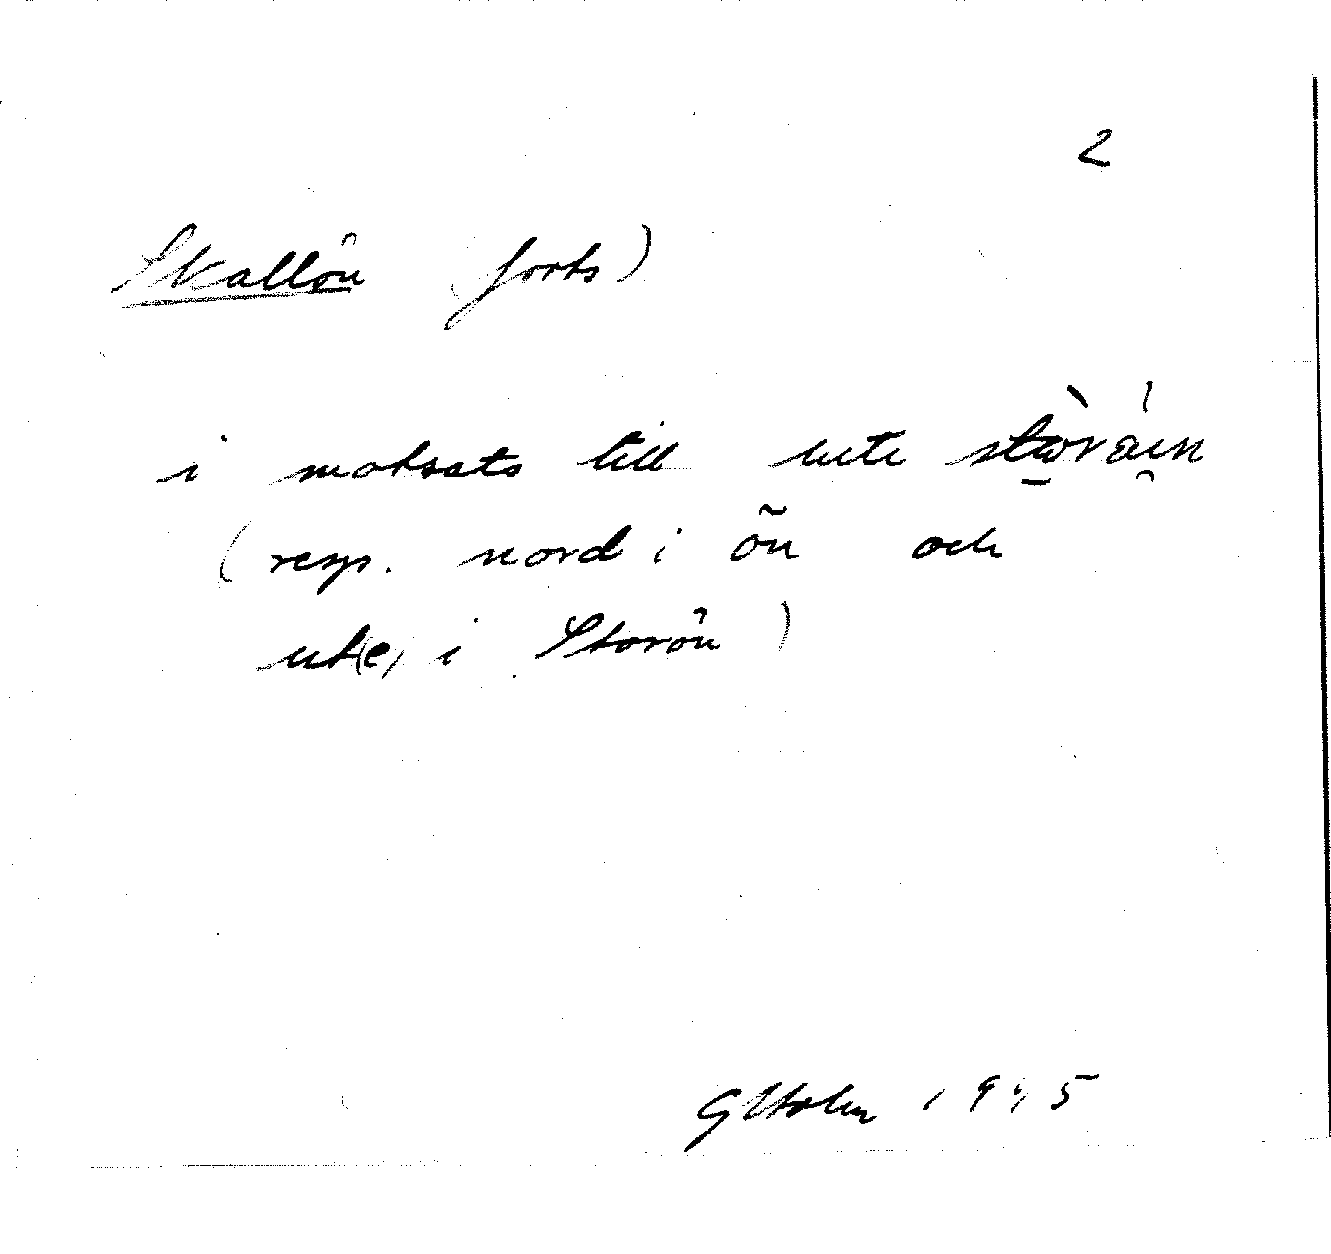 2
Skallön (forts)
i motsats till
(resp. nord i ön och
ut(e) i Storön)
G Holm 1945